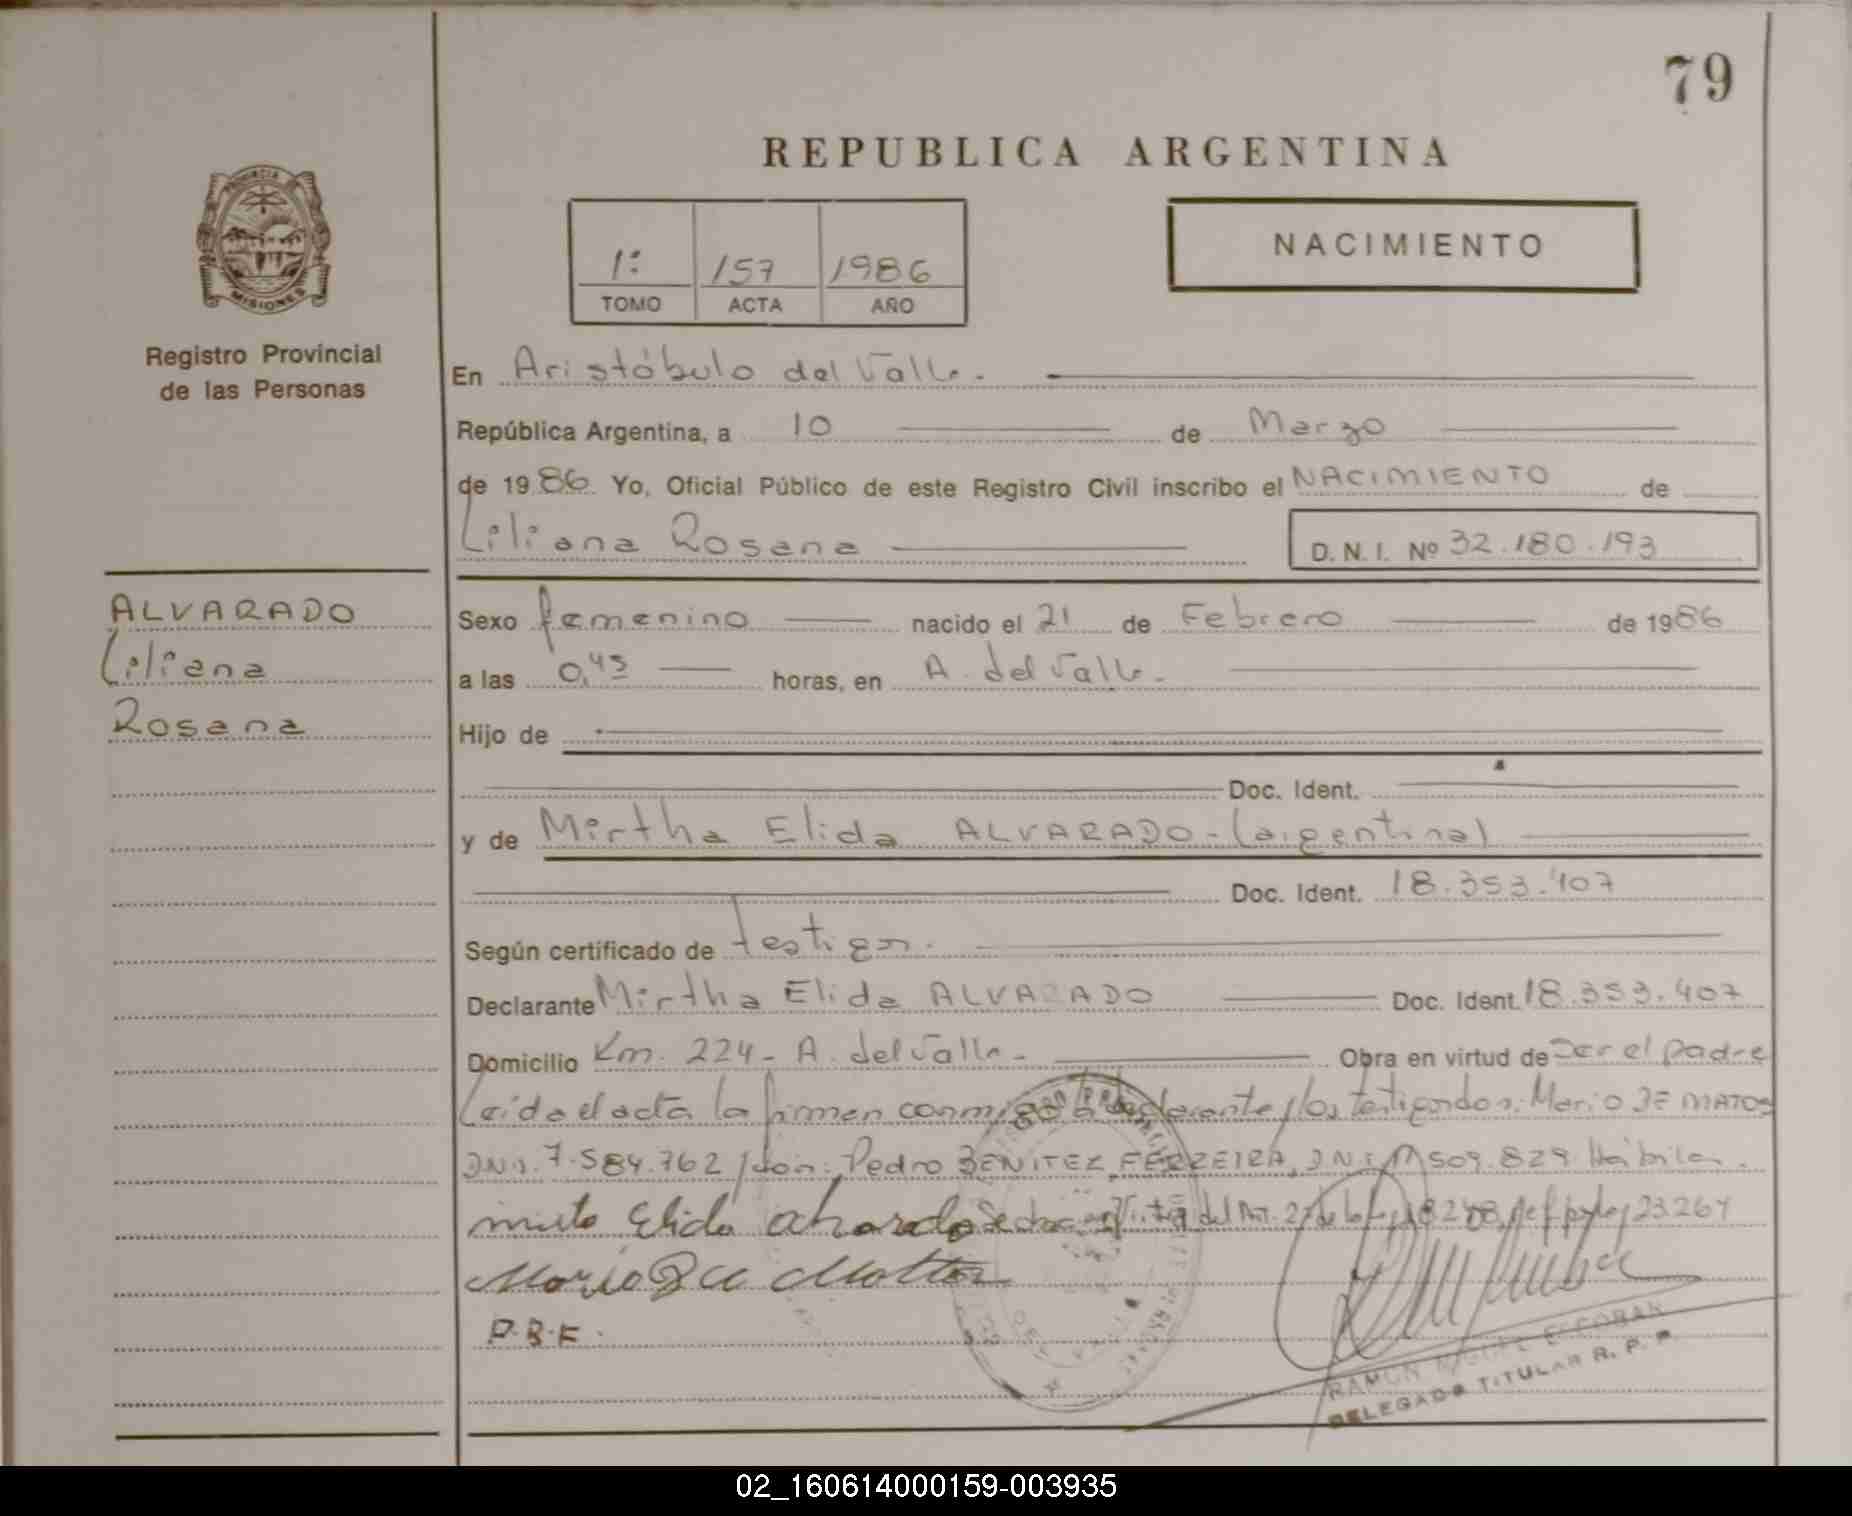 79
REPUBLICA ARGENTINA
PROVINCIA DE
MISIONES
Registro Provincial
de las Personas
1º 157 1986
TOMO ACTA AÑO
NACIMIENTO
En Aristóbulo del Valle.
República Argentina, a 10 de Marzo
de 1986. Yo, Oficial Público de este Registro Civil inscribo el NACIMIENTO de
Liliana Rosana D. N. I. Nº 32.180.193
ALVARADO
Liliana
Rosana
Sexo femenino nacido el 21 de Febrero de 1986
a las 0,45 horas, en A. del Valle.
Hijo de
Doc. Ident.
y de Mirtha Elida ALVARADO - (argentina)
Doc. Ident. 18.353.407
Según certificado de testigos.
Declarante Mirtha Elida ALVARADO Doc. Ident. 18.353.407
Domicilio Km. 224 - A. del Valle - Obra en virtud de Ser el padre
Leída el acta la firman conmigo la declarante y los testigos don: Mario DE MATOS
DNI. 7.584.762 y don: Pedro BENITEZ FERREIRA, DNI M 509.829 Hábiles.
mirta Elida alvarado Se del Art. 2 de la ley 18.248, ley 23.264
Mario De Mattos
P.B.F.
RAMON MIGUEL ESCOBAR
DELEGADO TITULAR R. P. P.
02_160614000159-003935